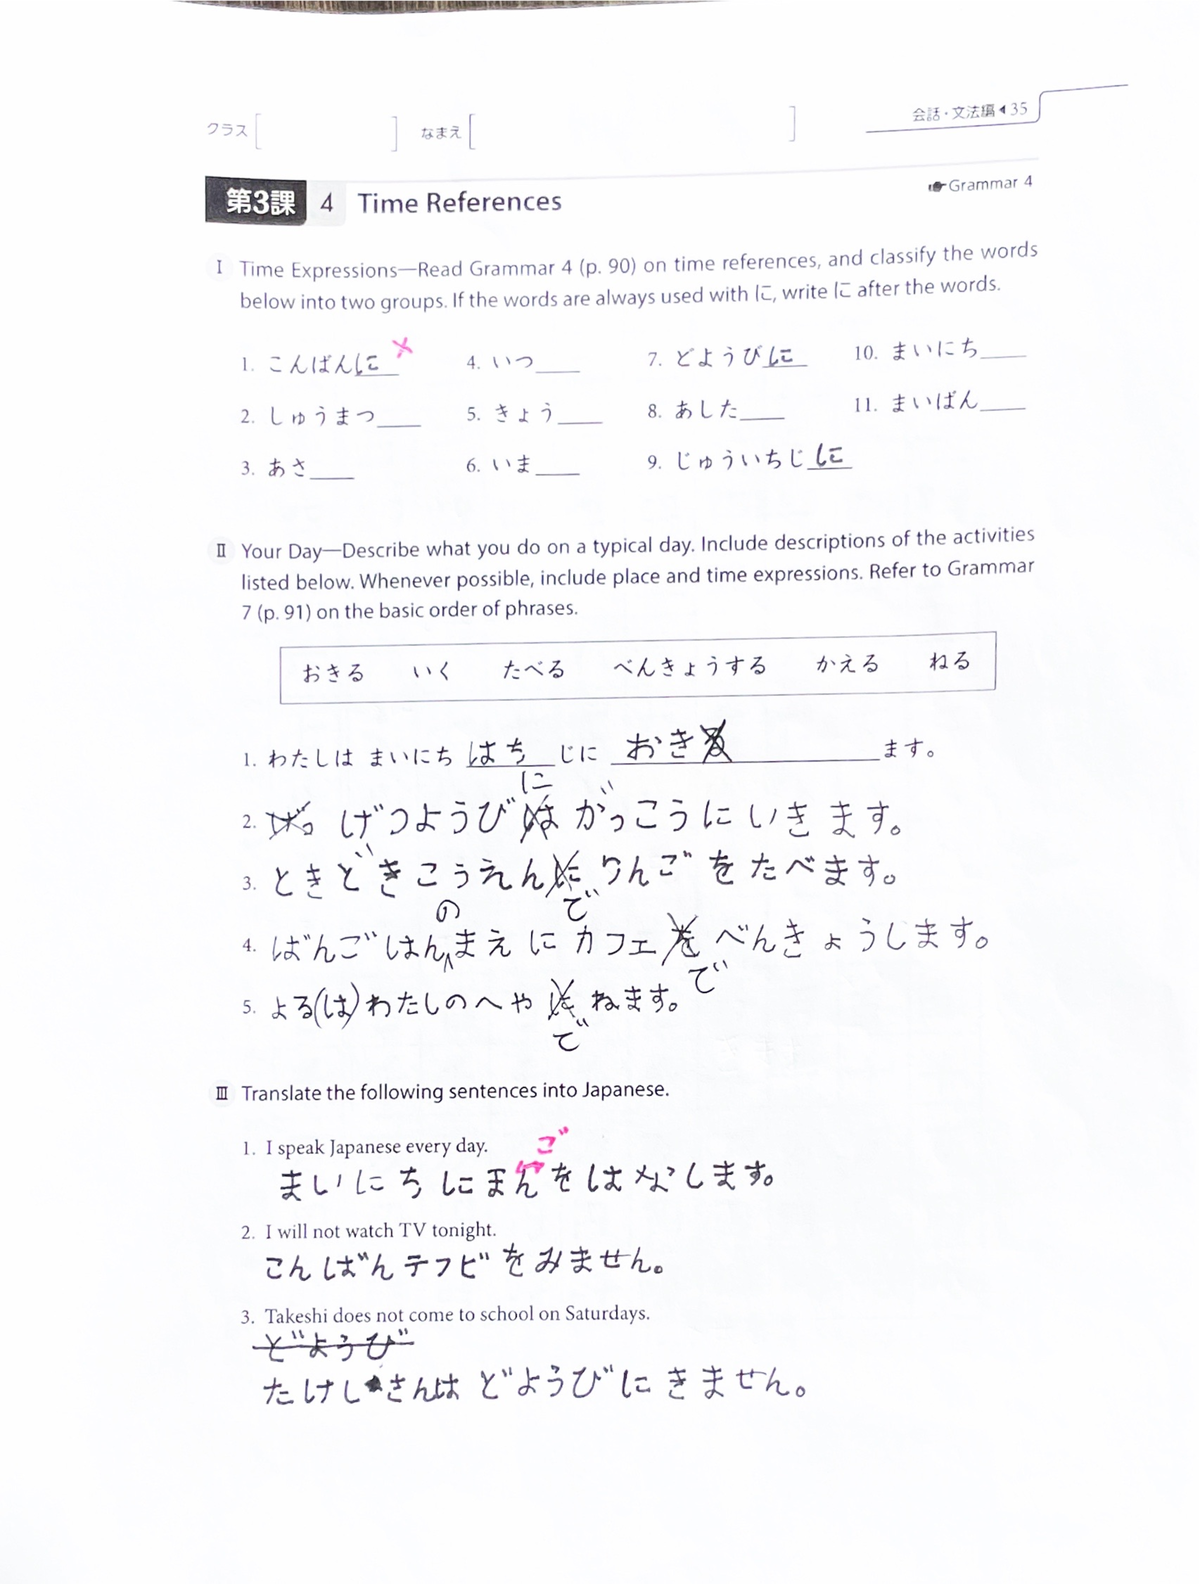 クラス[ ] なまえ[ ] 会話・文法編◀35
第3課 4 Time References ☛Grammar 4
I Time Expressions—Read Grammar 4 (p. 90) on time references, and classify the words
below into two groups. If the words are always used with に, write に after the words.
1. こんばんに × 4. いつ____ 7. どようびに 10. まいにち____
2. しゅうまつ____ 5. きょう____ 8. あした____ 11. まいばん____
3. あさ____ 6. いま____ 9. じゅういちじに
II Your Day—Describe what you do on a typical day. Include descriptions of the activities
listed below. Whenever possible, include place and time expressions. Refer to Grammar
7 (p. 91) on the basic order of phrases.
おきる いく たべる べんきょうする かえる ねる
1. わたしは まいにち はち じに おきる ます。
に
2. げつようびは がっこうにいきます。
3. ときどきこうえんに りんごをたべます。
の で
4. ばんごはんまえに カフェを べんきょうします。
で
5. よる(は)わたしのへやに ねます。
で
III Translate the following sentences into Japanese.
1. I speak Japanese every day.
ご
まいにち にまんをはなします。
2. I will not watch TV tonight.
こんばんテフビをみません。
3. Takeshi does not come to school on Saturdays.
どようび
たけしさんは どようびに きません。